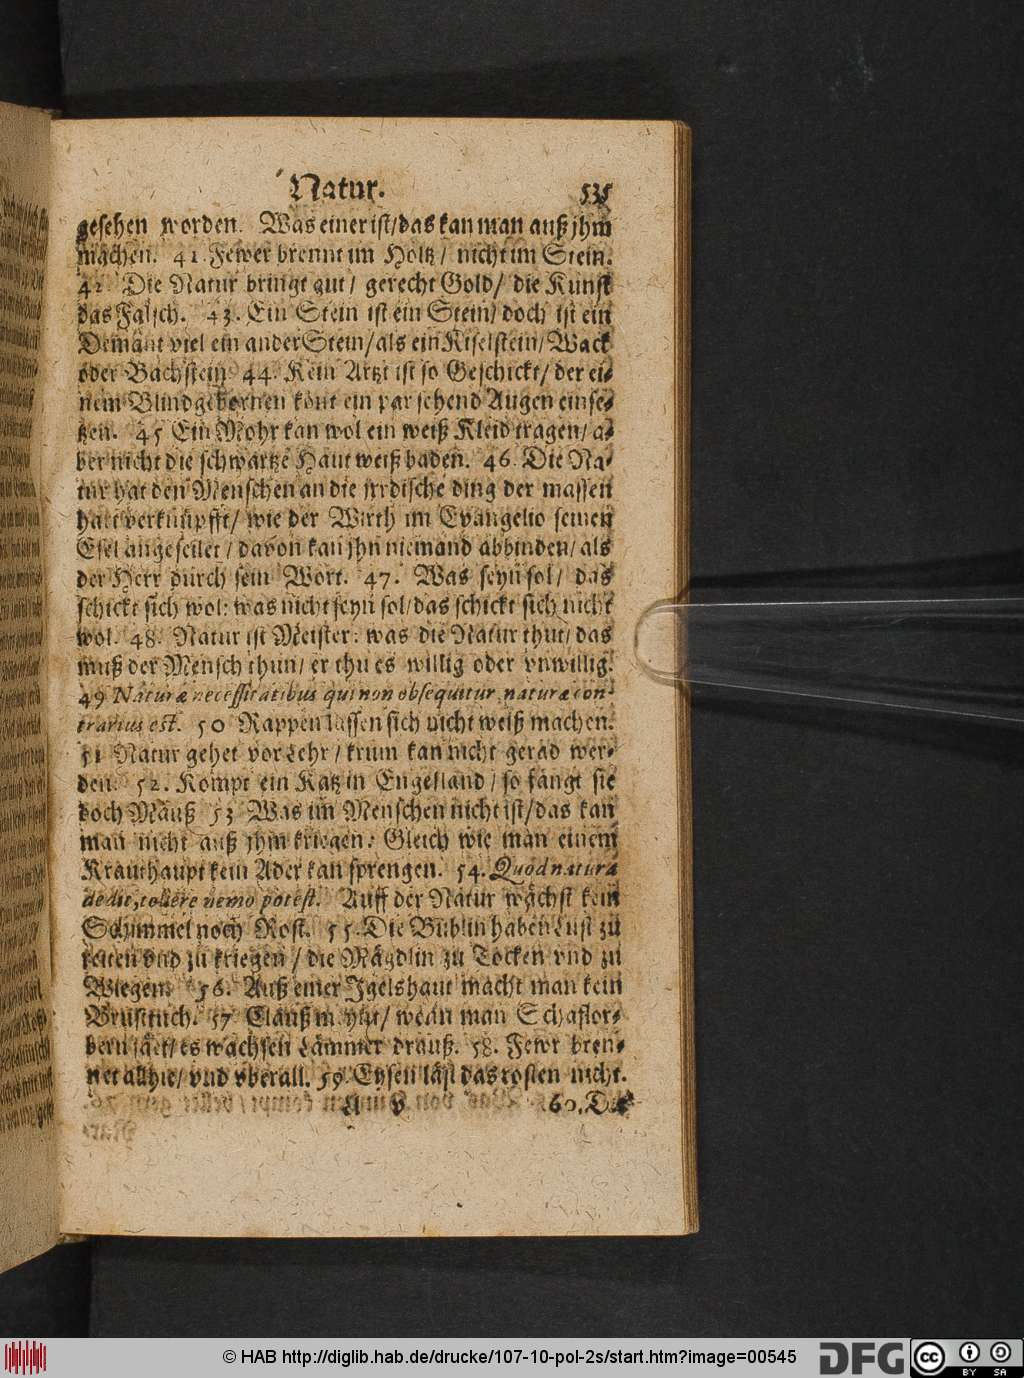 Natur. 535
gesehen worden. Was einer ist/das kan man auß jhm
machen. 41. Fewer brennt im Holtz/ nicht im Stein.
42. Die Natur bringt gut/ gerecht Gold/ die Kunst
das Falsch. 43. Ein Stein ist ein Stein/ doch ist ein
Demant viel ein ander Stein/als ein Kiselstein/Wack
oder Bachstein. 44. Kein Artzt ist so Geschickt/ der ei-
nem Blindgebornen könt ein par sehend Augen einse-
tzen. 45 Ein Mohr kan wol ein weiß Kleid tragen/ a-
ber nicht die schwartze Haut weiß baden. 46. Die Na-
tur hat den Menschen an die jrrdische ding der massen
hart verknüpfft/ wie der Wirth im Evangelio seinen
Esel angeseilet/ davon kan jhn niemand abbinden/ als
der Herr durch sein Wort. 47. Was seyn sol/ das
schickt sich wol: was nicht seyn sol/das schickt sich nicht
wol. 48. Natur ist Meister: was die Natur thut/ das
muß der Mensch thun/ er thu es willig oder vnwillig.
49 Naturæ necessitatibus qui non obsequitur, naturæ con-
trarius est. 50 Rappen lassen sich nicht weiß machen.
51 Natur gehet vor Lehr/ krum kan nicht gerad wer-
den. 52. Kompt ein Katz in Engelland/ so fängt sie
doch Mäuß 53 Was im Menschen nicht ist/das kan
man nicht auß jhm kriegen: Gleich wie man einem
Krauthaupt kein Ader kan sprengen. 54. Quod natura
dedit, tollere nemo potest. Auff der Natur wächst kein
Schimmel noch Rost. 55. Die Bublin haben Lust zu
reiten vnd zu kriegen/ die Mägdlin zu Tocken vnd zu
Wiegen. 56. Auß einer Igelshaut macht man kein
Brusttuch. 57 Clauß meynt/ wenn man Schaflor-
bern säet/ es wachsen Lämmer drauß. 58. Fewr bren-
net allhie/ vnd vberall. 59. Eysen läst das rosten nicht.
60. Die
© HAB http://diglib.hab.de/drucke/107-10-pol-2s/start.htm?image=00545
DFG
cc
BY SA